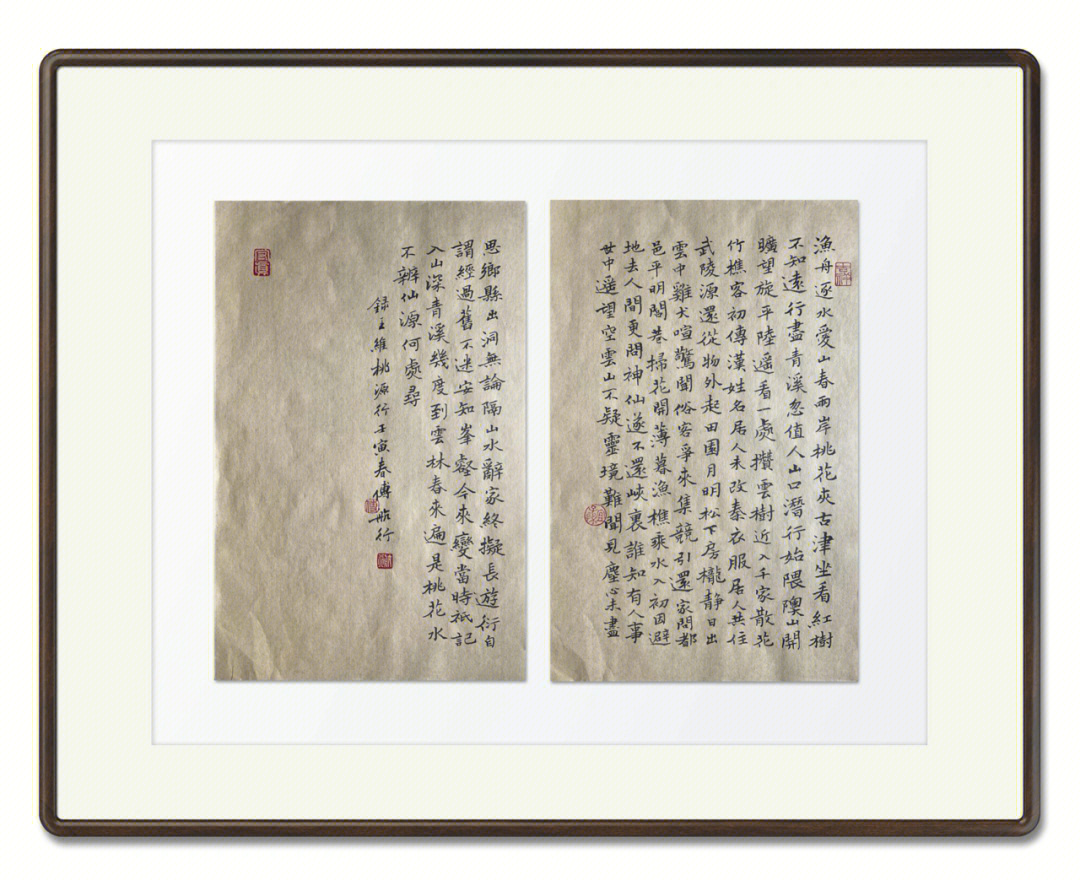 漁舟逐水愛山春兩岸桃花夾古津坐看紅樹
不知遠行盡青溪忽值人山口潛行始隈隩山開
曠望旋平陸遥看一處攢雲樹近入千家散花
竹樵客初傳漢姓名居人未改秦衣服居人共住
武陵源還從物外起田園月明松下房櫳靜日出
雲中雞犬喧驚聞俗客爭來集競引還家問都
邑平明閭巷掃花開薄暮漁樵乘水入初因避
地去人間更問神仙遂不還峽裏誰知有人事
世中遥望空雲山不疑靈境難聞見塵心未盡
思鄉縣出洞無論隔山水辭家終擬長遊衍自
謂經過舊不迷安知峯壑今來變當時祇記
入山深青溪幾度到雲林春來遍是桃花水
不辨仙源何處尋
録王維桃源行壬寅春傅行